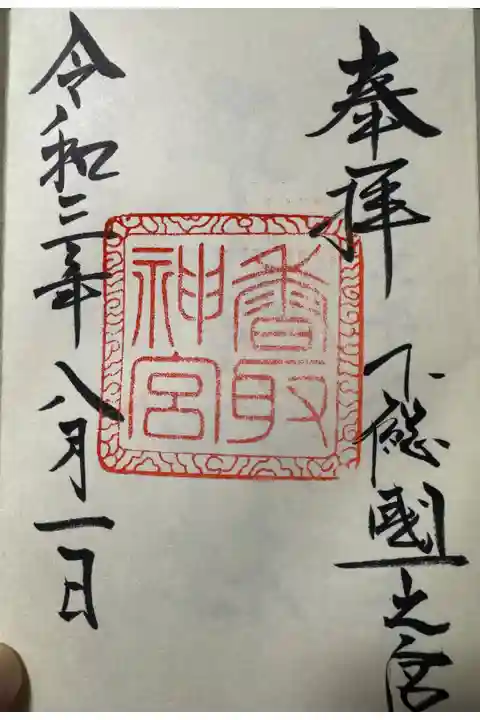 奉拝
下総國一之宮
香取神宮
令和三年八月一日